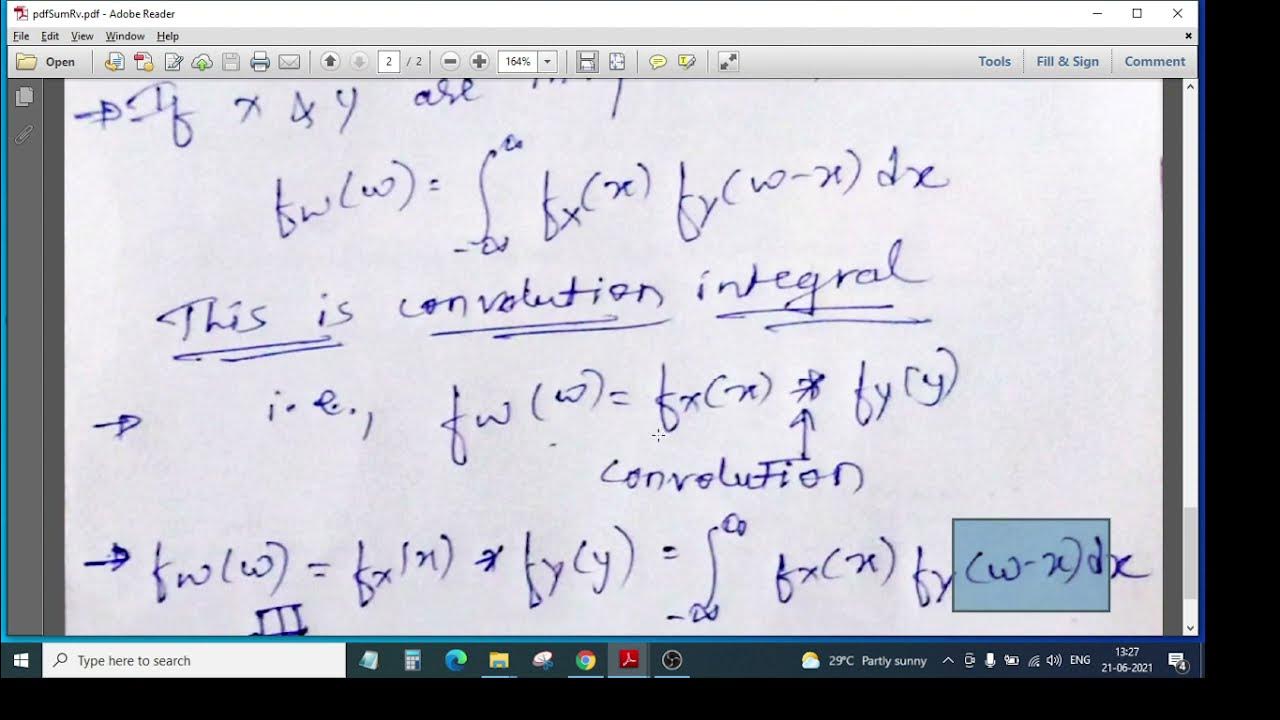 pdfSumRv.pdf - Adobe Reader
File Edit View Window Help
Open 2 / 2 164% Tools Fill & Sign Comment
→ If x & y are
fw(w) = ∫_{-∞}^{∞} fx(x) fy(w-x) dx
This is convolution integral
→ i.e., fw(w) = fx(x) * fy(y)
↑
convolution
→ fw(w) = fx(x) * fy(y) = ∫_{-∞}^{∞} fx(x) fy(w-x) dx
III
Type here to search 29°C Partly sunny ENG 13:27
21-06-2021 4